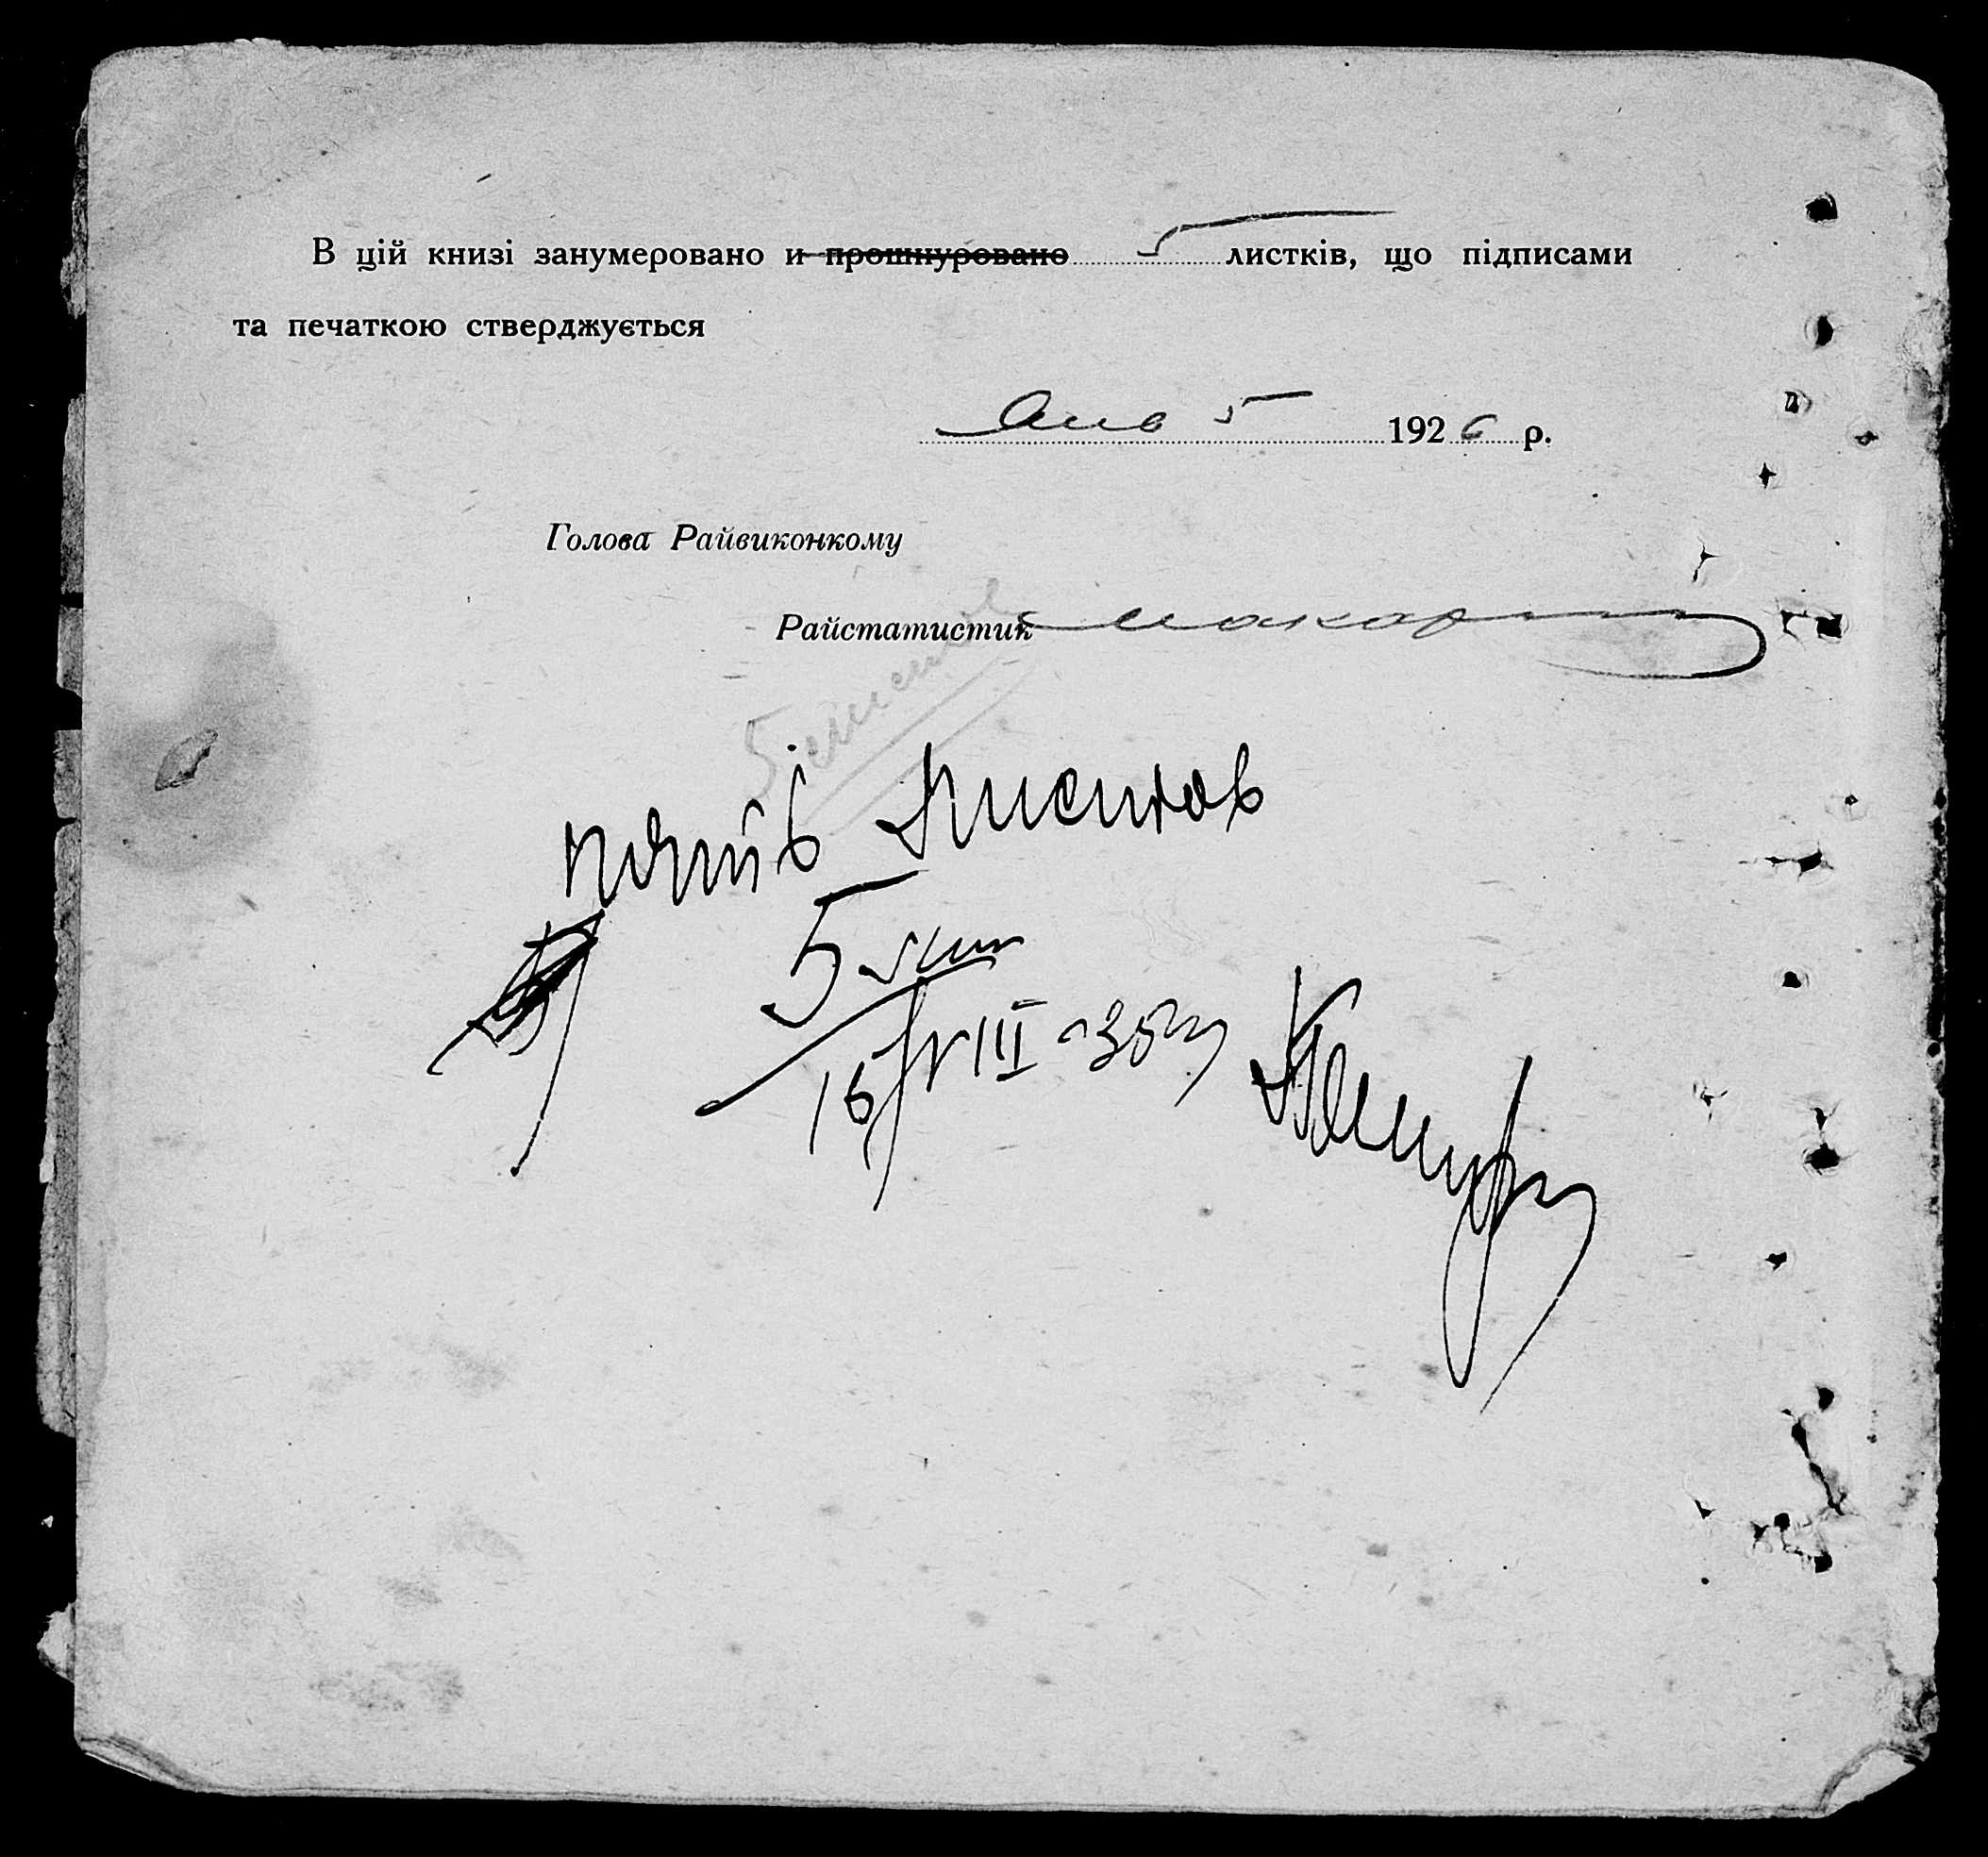 В цій книзі занумеровано и прошнуровано 5 листків, що підписами
та печаткою стверджується
Янв 5 1926 р.
Голова Райвиконкому
Райстатистик
5 листов
пять листов
5 лист
16/VIII-30